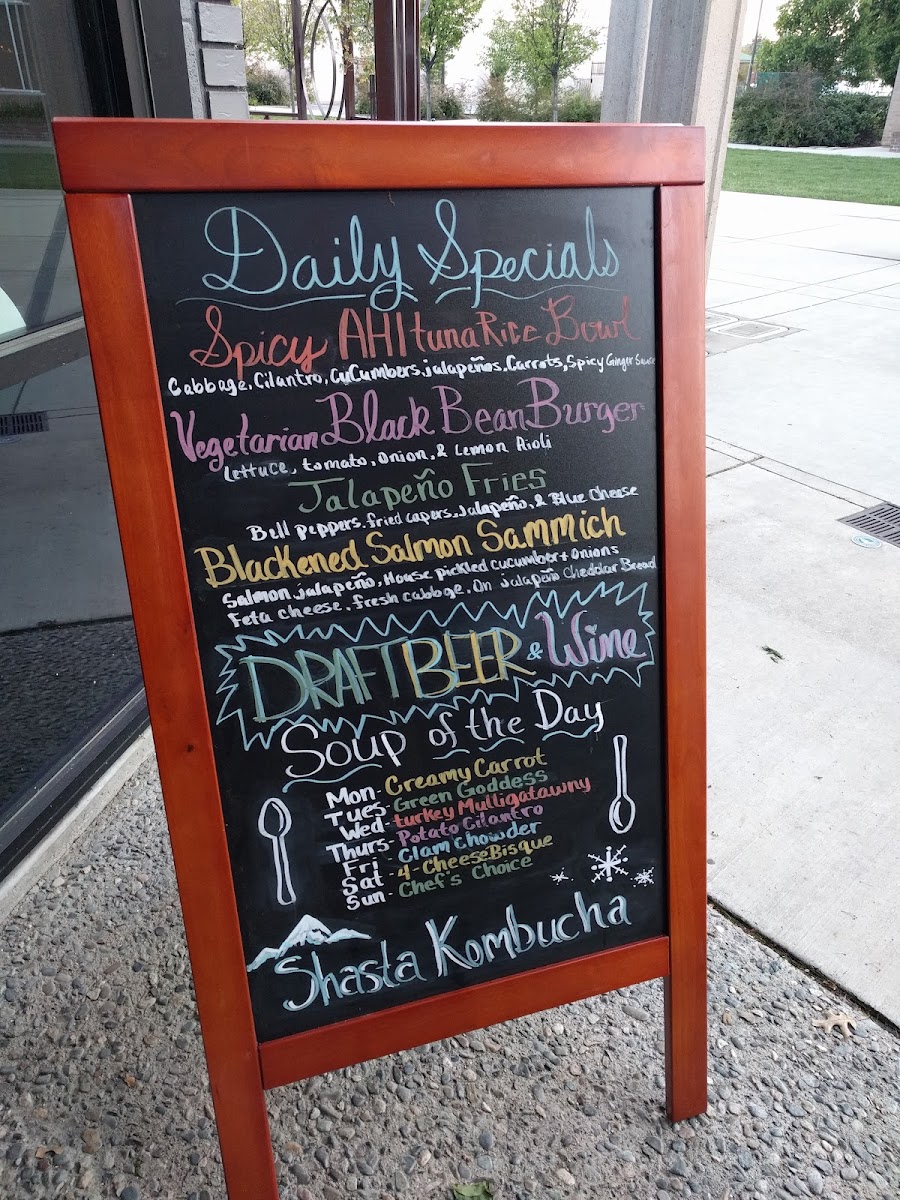 Daily Specials
Spicy AHI tuna Rice Bowl
Cabbage, Cilantro, CuCumbers, jalapeños, Carrots, Spicy Ginger Sauce
Vegetarian Black Bean Burger
Lettuce, tomato, Onion, & Lemon Aioli
Jalapeño Fries
Bell peppers, fried capers, Jalapeño, & Blue Cheese
Blackened Salmon Sammich
Salmon, jalapeño, House pickled cucumber + onions
Feta cheese, fresh cabbage, On jalapeño Cheddar Bread
DRAFT BEER & Wine
Soup of the Day
Mon - Creamy Carrot
Tues - Green Goddess
Wed - turkey Mulligatawny
Thurs - Potato Cilantro
Fri - Clam Chowder
Sat - 4-Cheese Bisque
Sun - Chef's Choice
Shasta Kombucha